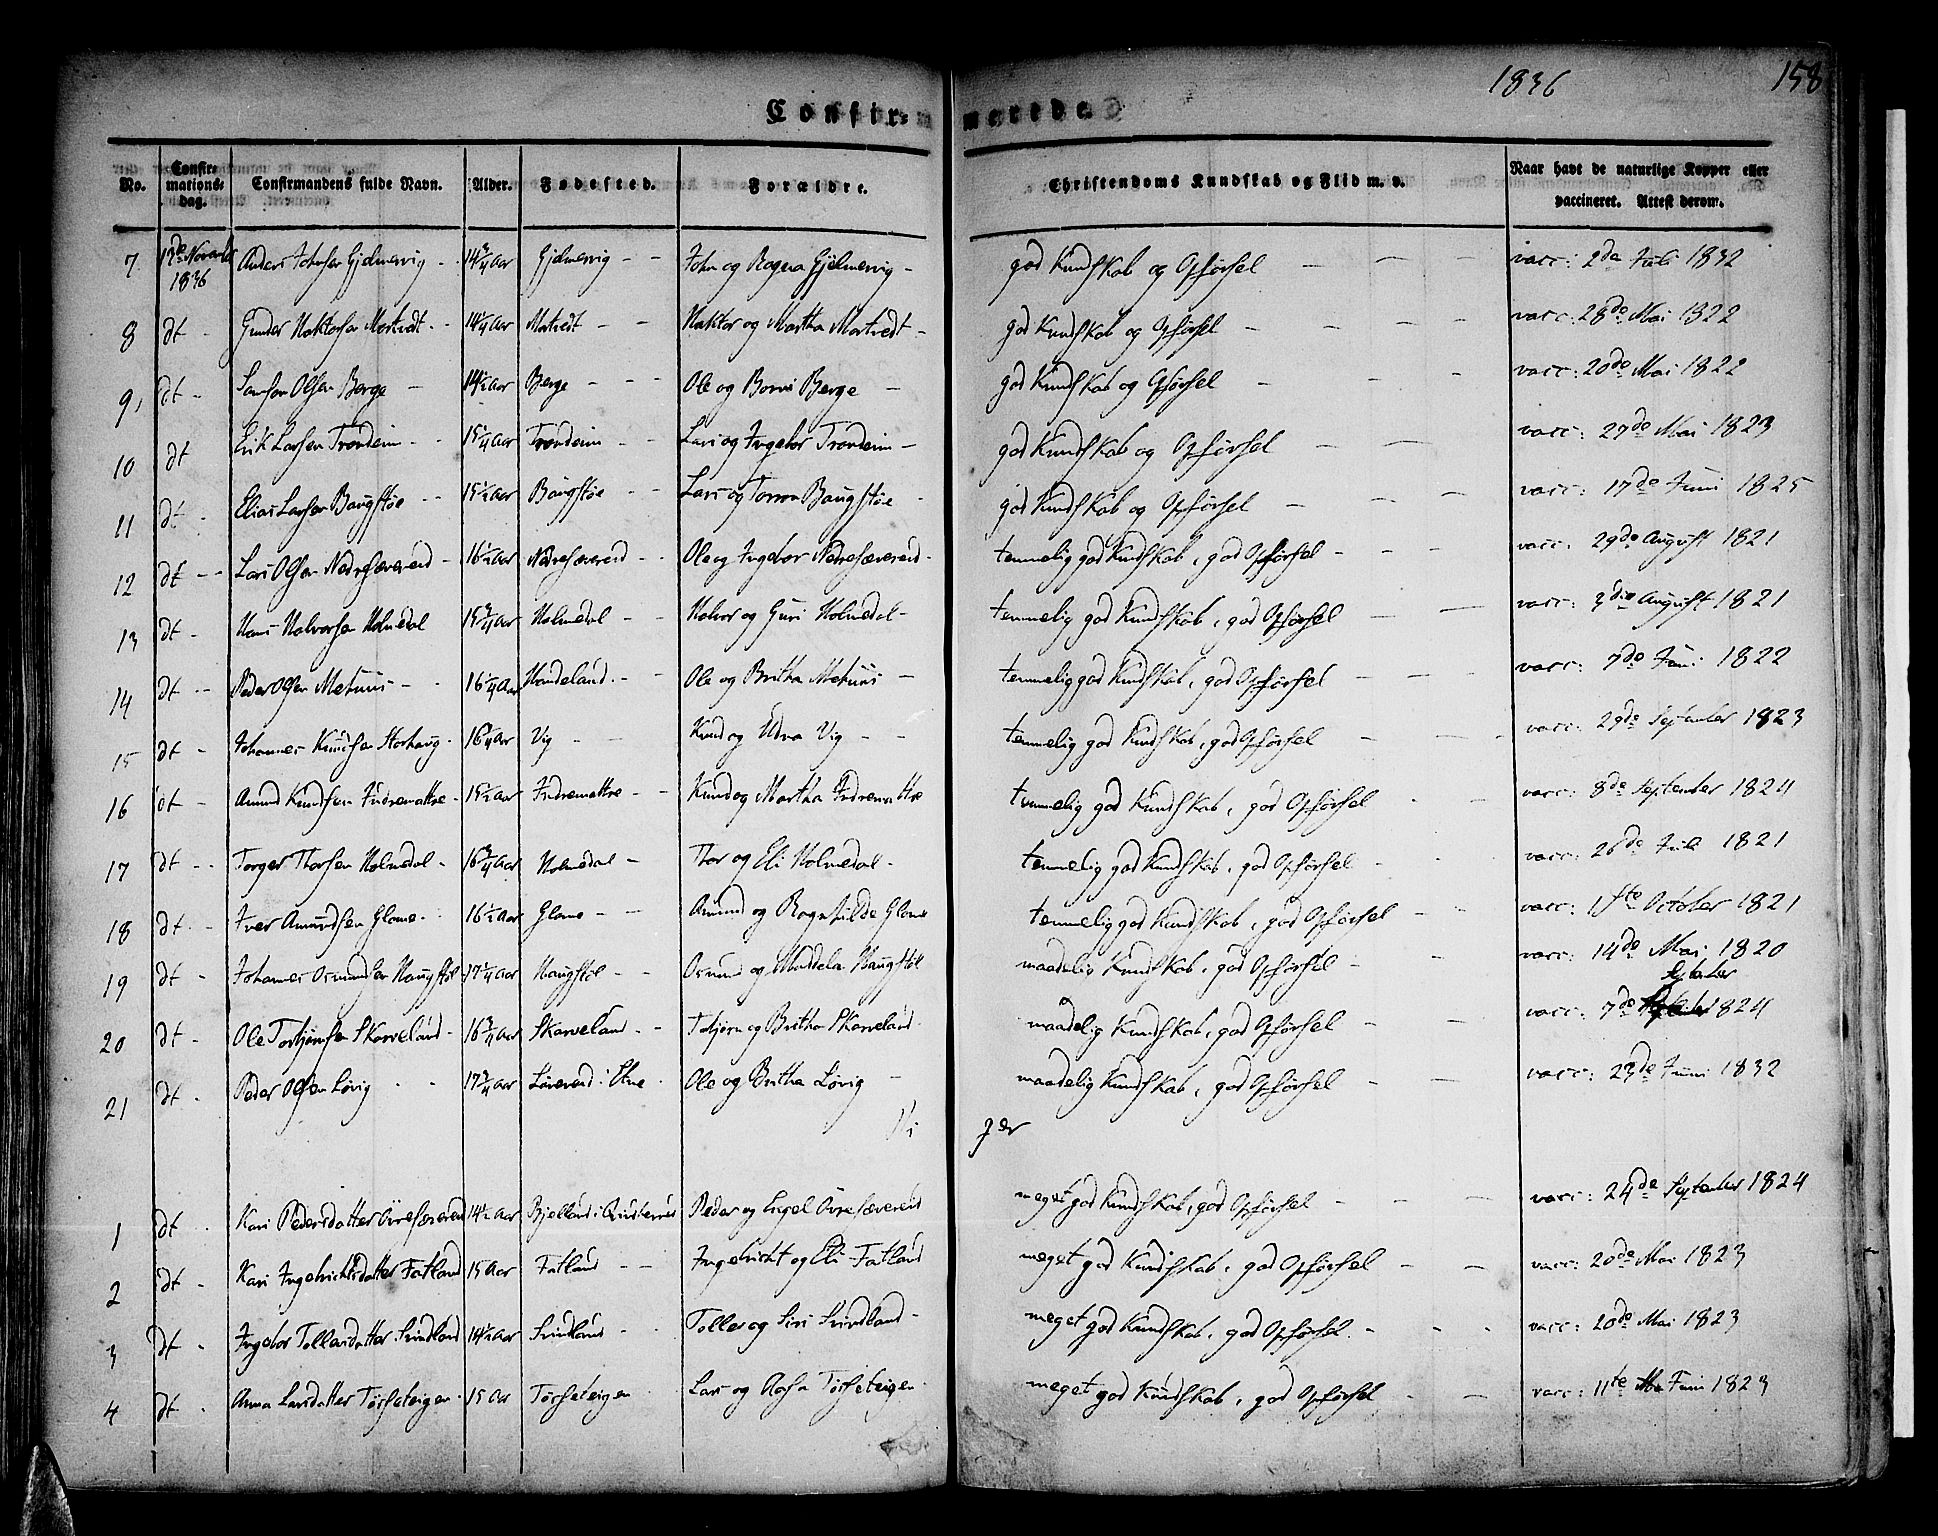 1836 158
Confirmerede.
No. Confirmations-dag. Confirmandens fulde Navn. Alder. Fødested. Forældre. Christendoms Kundskab og Flid m. v. Naar havt de naturlige Kopper eller vaccineret. Attest derom.
7 13de Novemb 1836 Anders Johnsen Gjelmervig - 14 3/4 Aar Gjelmervig - John og Ragna Gjelmervig - god Kundskab og Opførsel - - - vacc: 2den Juli 1832
8 dt - Gunder Haktorsen Mortvedt - 14 1/4 Aar Mortvedt - - Haktor og Martha Mortvedt - god Kundskab og Opførsel - - - - vacc: 28de Mai 1822
9, dt - Samson Olsen Berge - 14 1/2 Aar Berge - - - Ole og Berge - god Kundskab og Opførsel - - - vacc: 20de Mai 1822
10 dt Erik Larsen Trondeim - - 15 1/4 Aar Trondeim - - Lars og Ingebor Trondeim - god Kundskab og Opførsel - - vacc: 27de Mai 1823
11 dt - Elias Larsen Baugstøe - - 15 1/2 Aar Baugstøe - - Lars og Baugstøe - god Kundskab og Opførsel - - - vacc: 17de Juni 1825
12 dt - - Lars Olsen Nedresæverend - 16 1/2 Aar Nedresæverend - - Ole og Ingebor Nedresæverend - temmelig god Kundskab, god Opførsel - - - vacc: 29de August 1821
13 dt - Hans Halvorsen Holmedal 15 3/4 Aar Holmedal - - Halvor og Guri Holmedal - temmelig god Kundskab, god Opførsel - - vacc: 3die August 1821
14 dt - - Peder Olsen Mehuus - - 16 1/4 Aar Handeland - - Ole og Britha Mehuus - temmelig god Kundskab, god Opførsel - - - vacc: 7de Juni 1822
15 dt - Johannes Knudsen Storhaug - 16 Aar Vig - - Knud og Vig - - temmelig god Kundskab, god Opførsel - - - vacc: 29de September 1823
16 dt - Amund Knudsen Indremattre - 15 1/2 Aar Indremattre - - Knud og Martha Indremattre temmelig god Kundskab, god Opførsel - - vacc: 8de September 1824
17 dt - - Torger Thorsen Holmedal - 16 3/4 Aar Holmedal - Thor og Eli Holmedal - temmelig god Kundskab, god Opførsel - - vacc: 26de Juli 1821
18 dt - - Iver Amundsen Glame - 16 1/2 Aar Glame - - Amund og Ragnhilde Glame temmelig god Kundskab, god Opførsel - - vacc: 1ste October 1821
19 dt - Johannes Osmundsen Haugstøl 17 1/4 Aar Haugstøl - - Osmund og Haugstøl maadelig Kundskab, god Opførsel - - vacc: 14de Mai 1820
20 dt - Ole Torbjørnsen Skarveland - 16 3/4 Aar Skarveland - - Tobjørn og Britha Skarveland - maadelig Kundskab, god Opførsel - - vacc: 7de September 1824
21 dt - Peder Olsen Løvig - - 17 3/4 Aar i Ole og Britha Løvig - maadelig Kundskab, god Opførsel - - vacc: 23de Juni 1832
Piger
1 dt - Kari Pedersdatter Øvresæverend 14 1/2 Aar Bjelland i Qvindherred Peder og Engel Øvresæverend meget god Kundskab, god Opførsel - - - vacc: 24de September 1824
2 dt - Kari Ingebrichtsdatter Fatland 15 Aar Fatland - - Ingebricht og Eli Fatland meget god Kundskab, god Opførsel - - vacc: 20de Mai 1823
3 dt - Ingebor Tollersdatter Svindland 14 1/2 Aar Svindland - - Toller og Siri Svindland - meget god Kundskab, god Opførsel - - - vacc: 20de Mai 1823
4 dt - Anna Larsdatter Tørseteigen - 15 Aar Tørseteigen Lars og Aasa Tørseteigen - meget god Kundskab, god Opførsel - - vacc: 11te Juni 1823